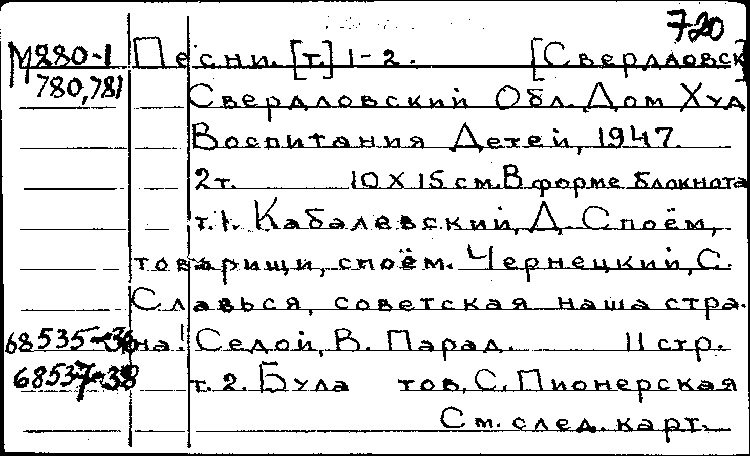 720
М280-1 Песни. [т.] 1-2. [Свердловск]
780,781 Свердловский Обл. Дом Худ
Воспитания Детей, 1947.
2т. 10 X 15 см. В форме блокнота
т.1. Кабалевский, Д. Споём,
товарищи, споём. Чернецкий, С.
Славься, советская наша стра-
68535-36 на! Седой, В. Парад. 11 стр.
68537-38 т. 2. Була тов, С. Пионерская
См. след. карт.